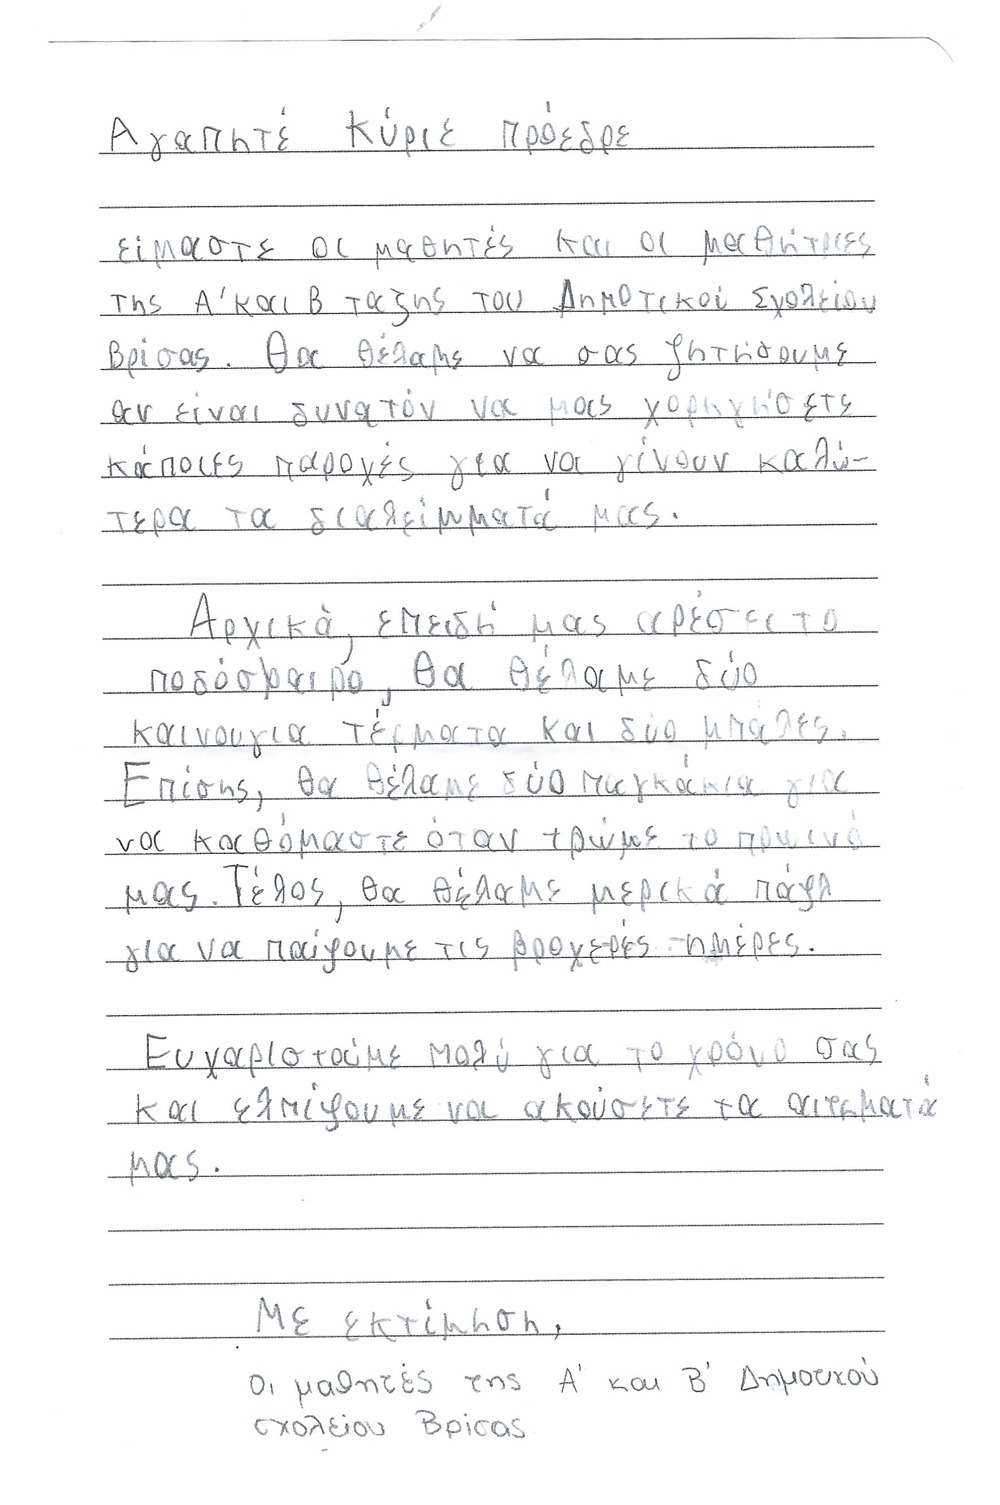 Αγαπητέ Κύριε πρόεδρε
είμαστε οι μαθητές και οι μαθήτριες
της Α' και Β τάξης του Δημοτικού Σχολείου
Βρίσας. Θα θέλαμε να σας ζητήσουμε
αν είναι δυνατόν να μας χορηγήσετε
κάποιες παροχές για να γίνουν καλύ-
τερα τα διαλείμματά μας.
Αρχικά, επειδή μας αρέσει το
ποδόσφαιρο, θα θέλαμε δύο
καινουγια τέρματα και δύο μπάλες.
Επίσης, θα θέλαμε δύο παγκάκια για
να καθόμαστε όταν τρώμε το πρωινό
μας. Τέλος, θα θέλαμε μερικά πάζλ
για να παίζουμε τις βροχερές ημέρες.
Ευχαριστούμε πολύ για το χρόνο σας
και ελπίζουμε να ακούσετε τα αιτήματά
μας.
Με εκτίμηση,
Οι μαθητές της Α' και Β' Δημοτικού
σχολείου Βρίσας